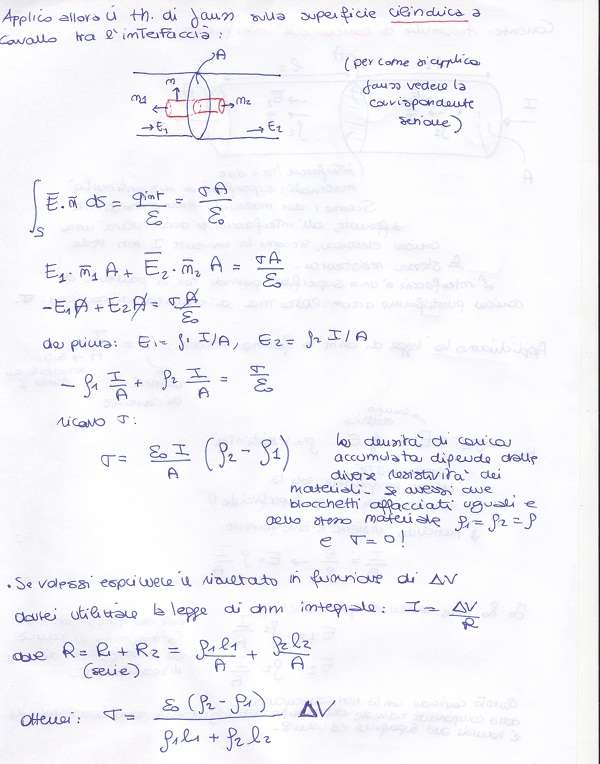 Applico allora il th. di Gauss sulla superficie cilindrica a
cavallo tra l'interfaccia:
A
n
n1
n2
→E1
→E2
(per come si applica
Gauss vedere la
corrispondente
sezione)
∫S E̅·n̅ dS = qint/ε0 = σA/ε0
E1·n̅1 A + E̅2·n̅2 A = σA/ε0
-E1A + E2A = σA/ε0
da prima: E1 = ρ1 I/A, E2 = ρ2 I/A
- ρ1 I/A + ρ2 I/A = σ/ε0
ricavo σ:
σ = ε0 I/A (ρ2 - ρ1)
la densità di carica
accumulata dipende dalle
diverse resistività dei
materiali. se avessi due
blocchetti affacciati uguali e
dello stesso materiale ρ1 = ρ2 = ρ
e σ = 0!
• Se volessi esprimere il risultato in funzione di ΔV
dovrei utilizzare la legge di ohm integrale: I = ΔV/R
dove R = R1 + R2 = ρ1l1/A + ρ2l2/A
(serie)
otterrei: σ = ε0 (ρ2 - ρ1)/(ρ1l1 + ρ2l2) ΔV